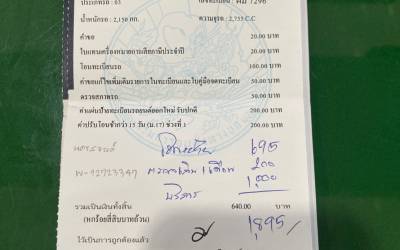 ประเภทรถ : 03 เลขทะเบียน : ผม 7296
น้ำหนักรถ : 2,150 กก. ความจุรถ : 2,755 C.C
ค่าขอ 20.00 บาท
ใบแทนเครื่องหมายการเสียภาษีประจำปี 20.00 บาท
โอนทะเบียนรถ 100.00 บาท
ค่าขอแก้ไขเพิ่มเติมรายการในทะเบียนและใบคู่มือจดทะเบียน 50.00 บาท
ตรวจสภาพรถ 50.00 บาท
ค่าแผ่นป้ายทะเบียนรถยนต์ออกใหม่ รับปกติ 200.00 บาท
ค่าปรับโอนช้ากว่า 15 วัน (ม.17) ช่วงที่ 1 200.00 บาท
695
W-92723347 200
บริการ 1,000
รวมเป็นเงินทั้งสิ้น 640.00 บาท
(หกร้อยสี่สิบบาทถ้วน) 1,895/
ไว้เป็นการถูกต้องแล้ว